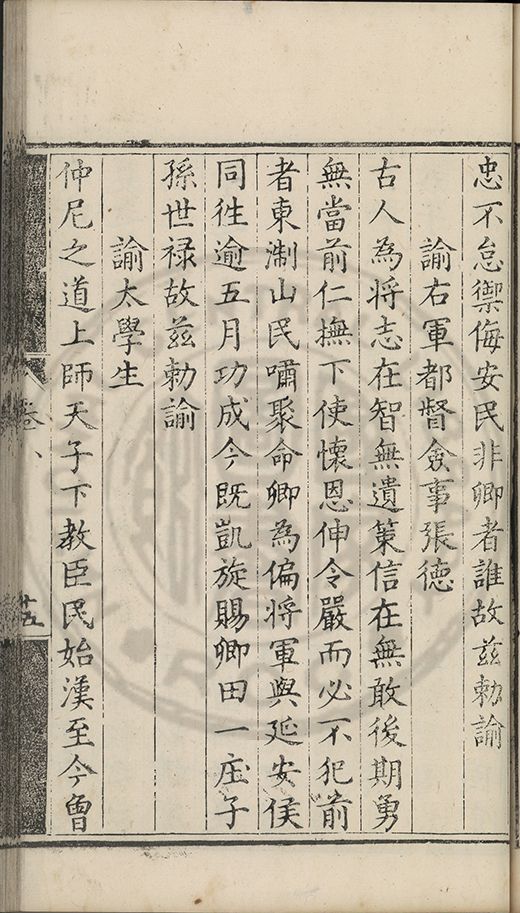 忠不怠禦侮安民非卿者誰故茲勅諭
諭右軍都督僉事張德
古人為將志在智無遺策信在無敢後期勇
無當前仁撫下使懷恩伸令嚴而必不犯前
者東淛山民嘯聚命卿為偏將軍與延安侯
同徃逾五月功成今既凱旋賜卿田一庄子
孫世禄故茲勅諭
諭太學生
仲尼之道上師天子下教臣民始漢至今曾
卷八
廿五